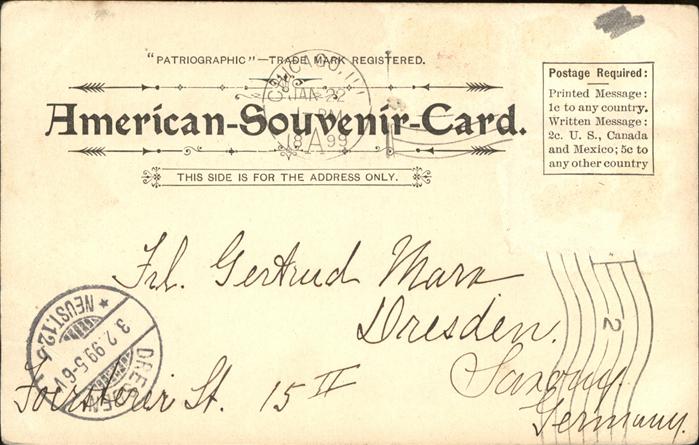 "PATRIOGRAPHIC"—TRADE MARK REGISTERED.
CHICAGO, ILL
JAN 22
A
American-Souvenir-Card.
THIS SIDE IS FOR THE ADDRESS ONLY.
Postage Required:
Printed Message:
1c to any country.
Written Message:
2c. U. S., Canada
and Mexico; 5c to
any other country
Frl. Gertrud Mara
Dresden.
Saxony
Germany.
St. 15 II
DRESDEN
NEUST. 12.
3.2.99.5-6V
2